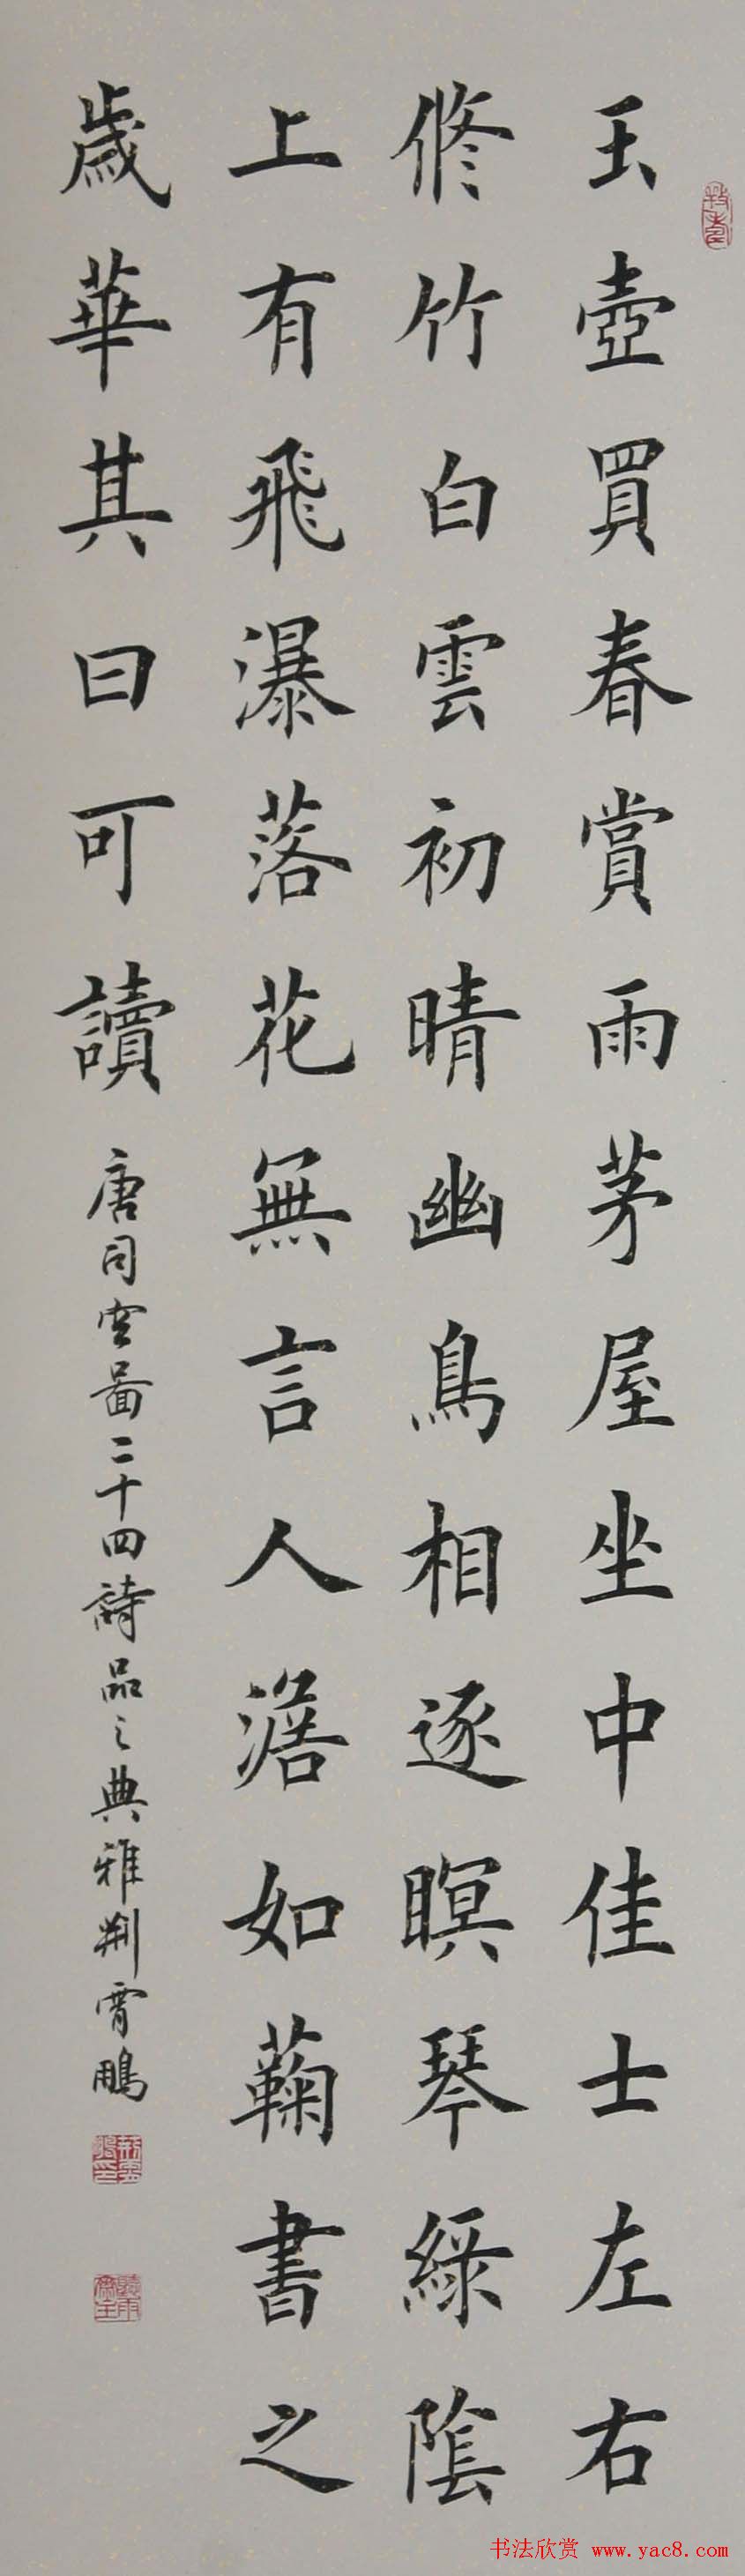 玉壺買春賞雨茅屋坐中佳士左右
修竹白雲初晴幽鳥相逐瞑琴綠陰
上有飛瀑落花無言人澹如菊書之
歲華其曰可讀
唐司空圖二十四詩品之典雅荆霄鵬
书法欣赏 www.yac8.com